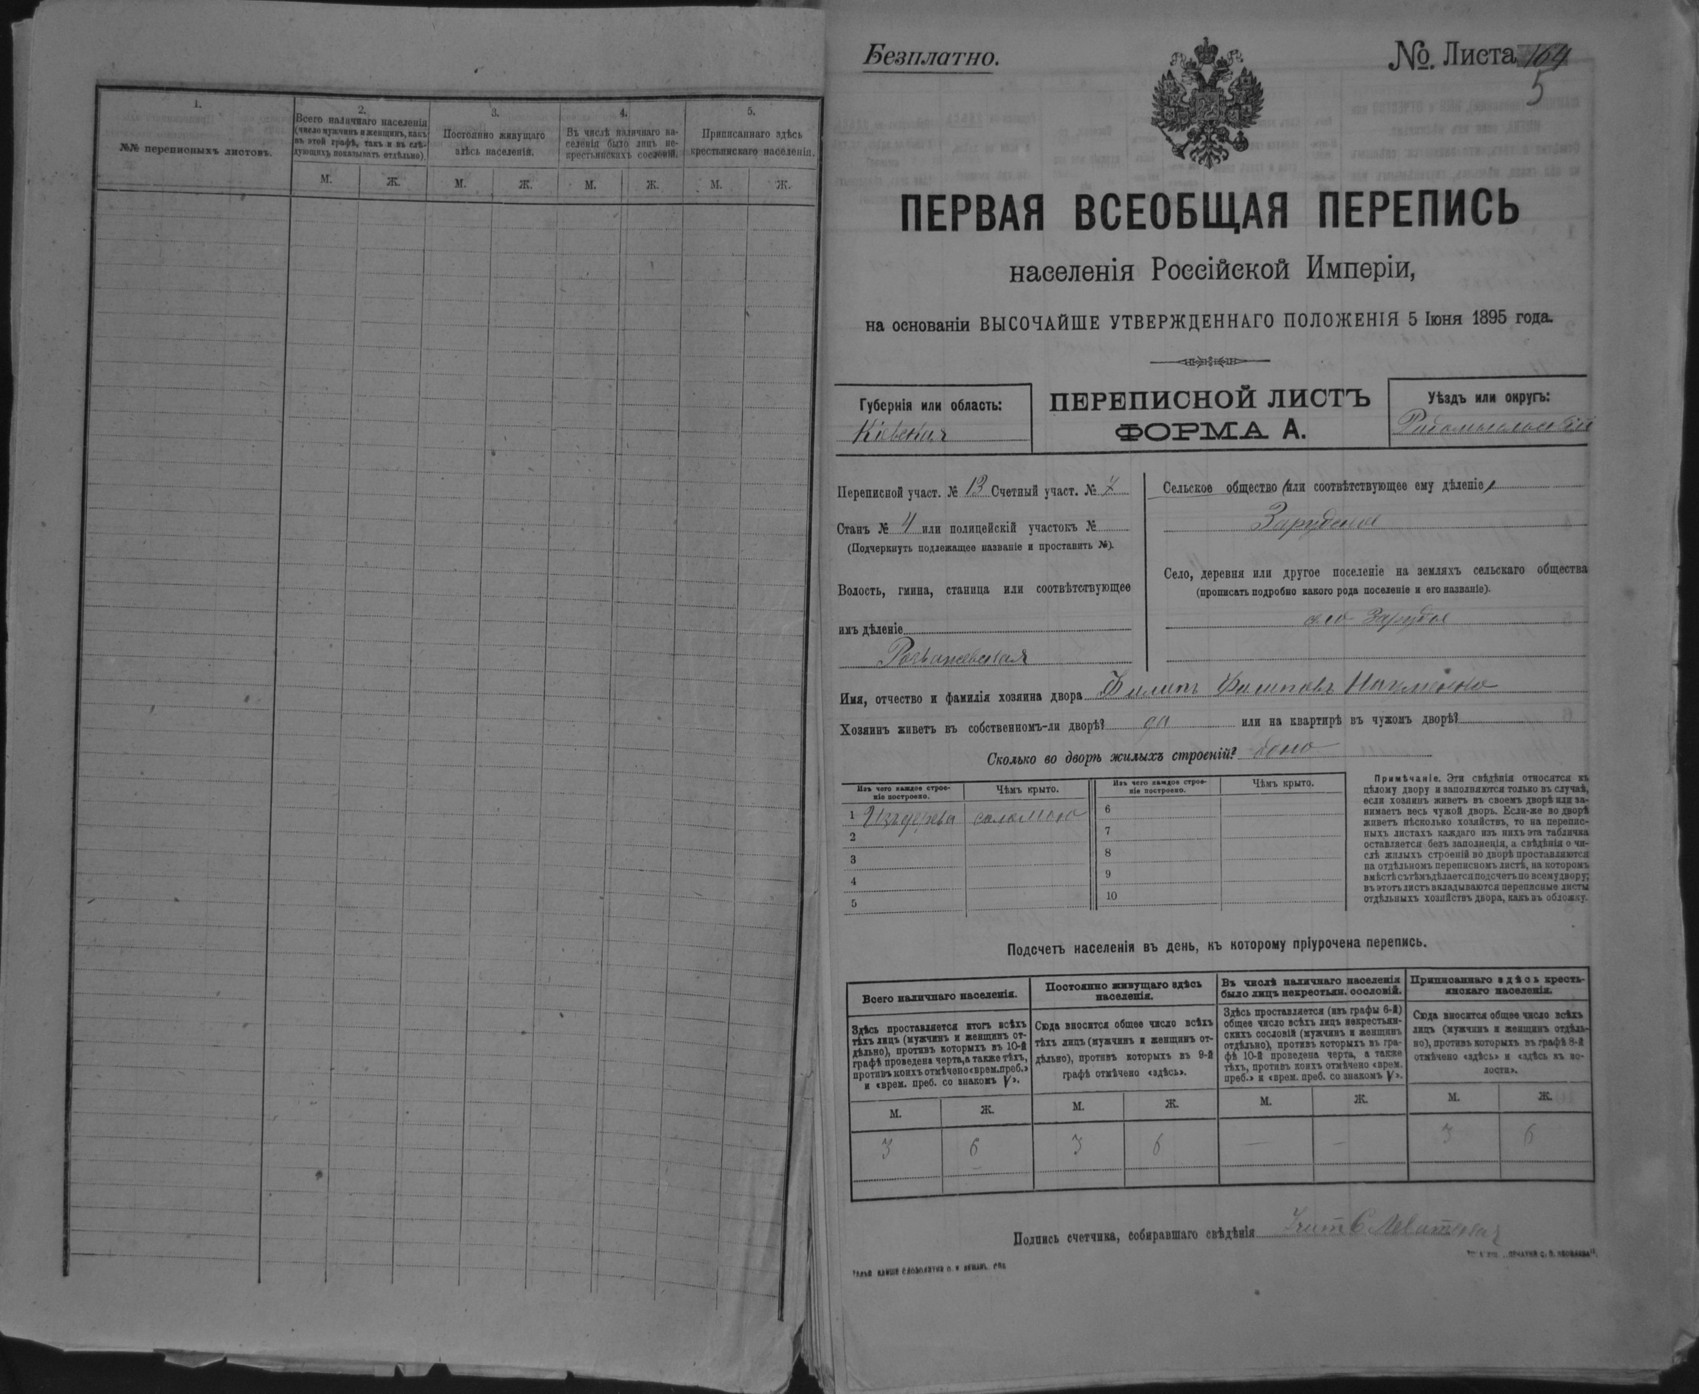 1.
№№ переписныхъ листовъ.
2.
Всего наличнаго населенія
(число мужчинъ и женщинъ, какъ
въ этой графѣ, такъ и въ слѣ-
дующихъ показывать отдѣльно).
3.
Постоянно живущаго
здѣсь населенія.
4.
Въ числѣ наличнаго на-
селенія было лицъ не-
крестьянскахъ сословій.
5.
Приписаннаго здѣсь
крестьянскаго населенія.
М. Ж. М. Ж. М. Ж. М. Ж.
Безплатно.
№. Листа 164
5
ПЕРВАЯ ВСЕОБЩАЯ ПЕРЕПИСЬ
населенія Россійской Имперіи,
на основаніи ВЫСОЧАЙШЕ УТВЕРЖДЕННАГО ПОЛОЖЕНІЯ 5 Іюня 1895 года.
Губернія или область:
Кіевская
ПЕРЕПИСНОЙ ЛИСТЪ
ФОРМА А.
Уѣздъ или округъ:
Радомысльскій
Переписной участ. № 13 Счетный участ. № 7
Станъ № 4 или полицейскій участокъ №
(Подчеркнуть подлежащее названіе и проставить №).
Волость, гмина, станица или соотвѣтствующее
имъ дѣленіе
Розважевская
Сельское общество (или соотвѣтствующее ему дѣленіе)
Зарудское
Село, деревня или другое поселеніе на земляхъ сельскаго общества
(прописать подробно какого рода поселеніе и его названіе).
село Зарудье
Имя, отчество и фамилія хозяина двора Филипъ Филиповъ Науменко
Хозяинъ живетъ въ собственномъ-ли дворѣ? да или на квартирѣ въ чужомъ дворѣ?
Сколько во дворѣ жилыхъ строеній?
Изъ чего каждое строе-
ніе построено.
Чѣмъ крыто.
Изъ чего каждое строе-
ніе построено.
Чѣмъ крыто.
1 Изъ дерева соломою
2
3
4
5
6
7
8
9
10
Примѣчаніе. Эти свѣдѣнія относятся къ
цѣлому двору и заполняются только въ случаѣ,
если хозяинъ живетъ въ своемъ дворѣ или за-
нимаетъ весь чужой дворъ. Если-же во дворѣ
живетъ нѣсколько хозяйствъ, то на перепис-
ныхъ листахъ каждаго изъ нихъ эта табличка
оставляется безъ заполненія, а свѣдѣнія о чи-
слѣ жилыхъ строеній во дворѣ проставляются
на отдѣльномъ переписномъ листѣ, на которомъ
вмѣстѣ съ тѣмъ дѣлается подсчетъ по всему двору;
въ этотъ листъ вкладываются переписные листы
отдѣльныхъ хозяйствъ двора, какъ въ обложку.
Подсчетъ населенія въ день, къ которому пріурочена перепись.
Всего наличнаго населенія.
Здѣсь проставляется итогъ всѣхъ
тѣхъ лицъ (мужчинъ и женщинъ от-
дѣльно), противъ которыхъ въ 10-й
графѣ проведена черта, а также тѣхъ,
противъ коихъ отмѣчено «врем. преб.»
и «врем. преб. со знакомъ V».
Постоянно живущаго здѣсь
населенія.
Сюда вносится общее число всѣхъ
тѣхъ лицъ (мужчинъ и женщинъ от-
дѣльно), противъ которыхъ въ 9-й
графѣ отмѣчено «здѣсь».
Въ числѣ наличнаго населенія
было лицъ некрестьян. сословій.
Здѣсь проставляется (изъ графы 6-й)
общее число всѣхъ лицъ некрестьян-
скихъ сословій (мужчинъ и женщинъ
отдѣльно), противъ которыхъ въ гра-
фѣ 10-й проведена черта, а также
тѣхъ, противъ коихъ отмѣчено «врем.
преб.» и «врем. преб. со знакомъ V».
Приписаннаго здѣсь кресть-
янскаго населенія.
Сюда вносится общее число всѣхъ
лицъ (мужчинъ и женщинъ отдѣль-
но), противъ которыхъ въ графѣ 8-й
отмѣчено «здѣсь» и «здѣсь въ во-
лости».
М. Ж. М. Ж. М. Ж. М. Ж.
3 6 3 6 — — 3 6
Подпись счетчика, собиравшаго свѣдѣнія